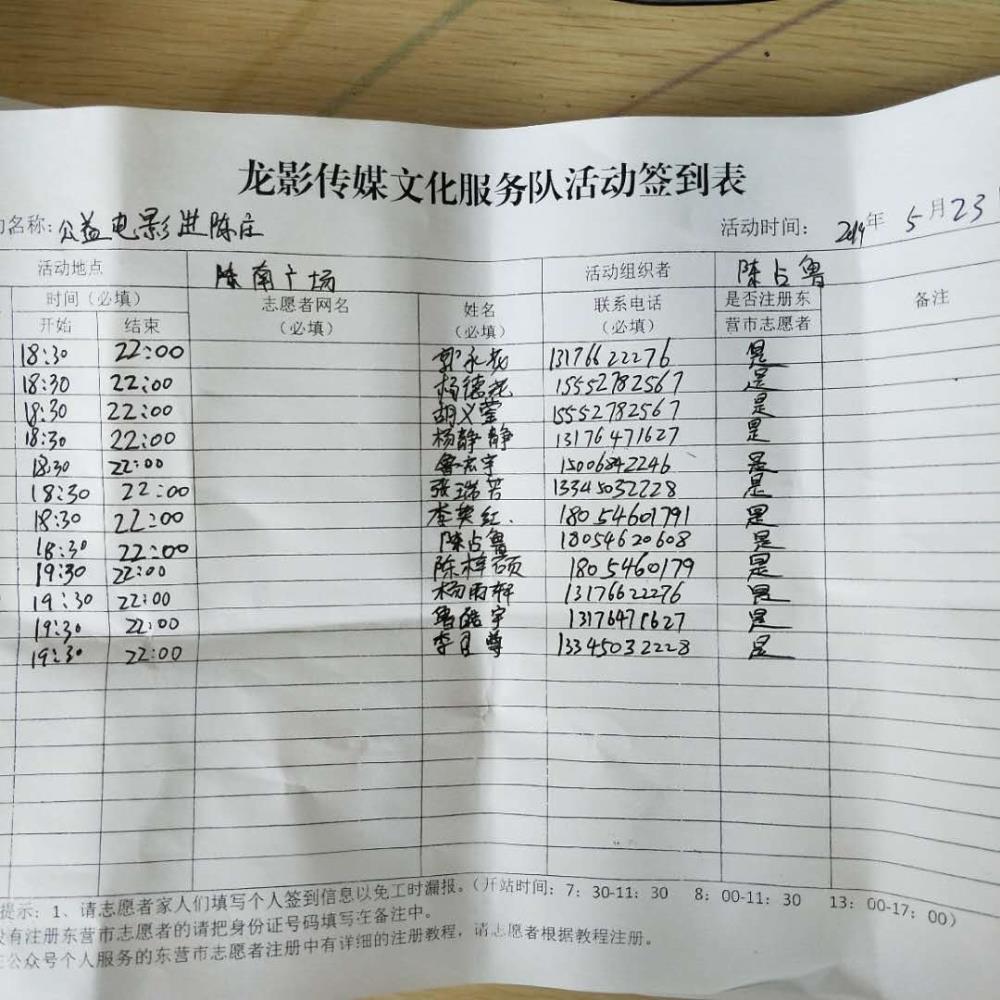 龙影传媒文化服务队活动签到表
名称: 公益电影进陈庄 活动时间: 2019年 5月23
活动地点 陈南广场 活动组织者 陈占鲁
时间（必填） 志愿者网名（必填） 姓名（必填） 联系电话（必填） 是否注册东营市志愿者 备注
开始 结束
18:30 22:00 郭永花 13176622276 是
18:30 22:00 杨德花 15552782567 是
18:30 22:00 胡义萱 15552782567 是
18:30 22:00 杨静静 13176471627 是
18:30 22:00 鲁宏宇 15006842246 是
18:30 22:00 张瑞芳 13345032228 是
18:30 22:00 李英红. 18054601791 是
18:30 22:00 陈占鲁 18054620608 是
19:30 22:00 陈梓硕 1805460179 是
19:30 22:00 杨雨轩 13176622276 是
19:30 22:00 鲁皓宇 13176471627 是
19:30 22:00 李月尊 13345032228 是
提示: 1、请志愿者家人们填写个人签到信息以免工时漏报。(开站时间: 7: 30-11: 30 8: 00-11: 30 13: 00-17: 00)
没有注册东营市志愿者的请把身份证号码填写在备注中。
公众号个人服务的东营市志愿者注册中有详细的注册教程, 请志愿者根据教程注册。